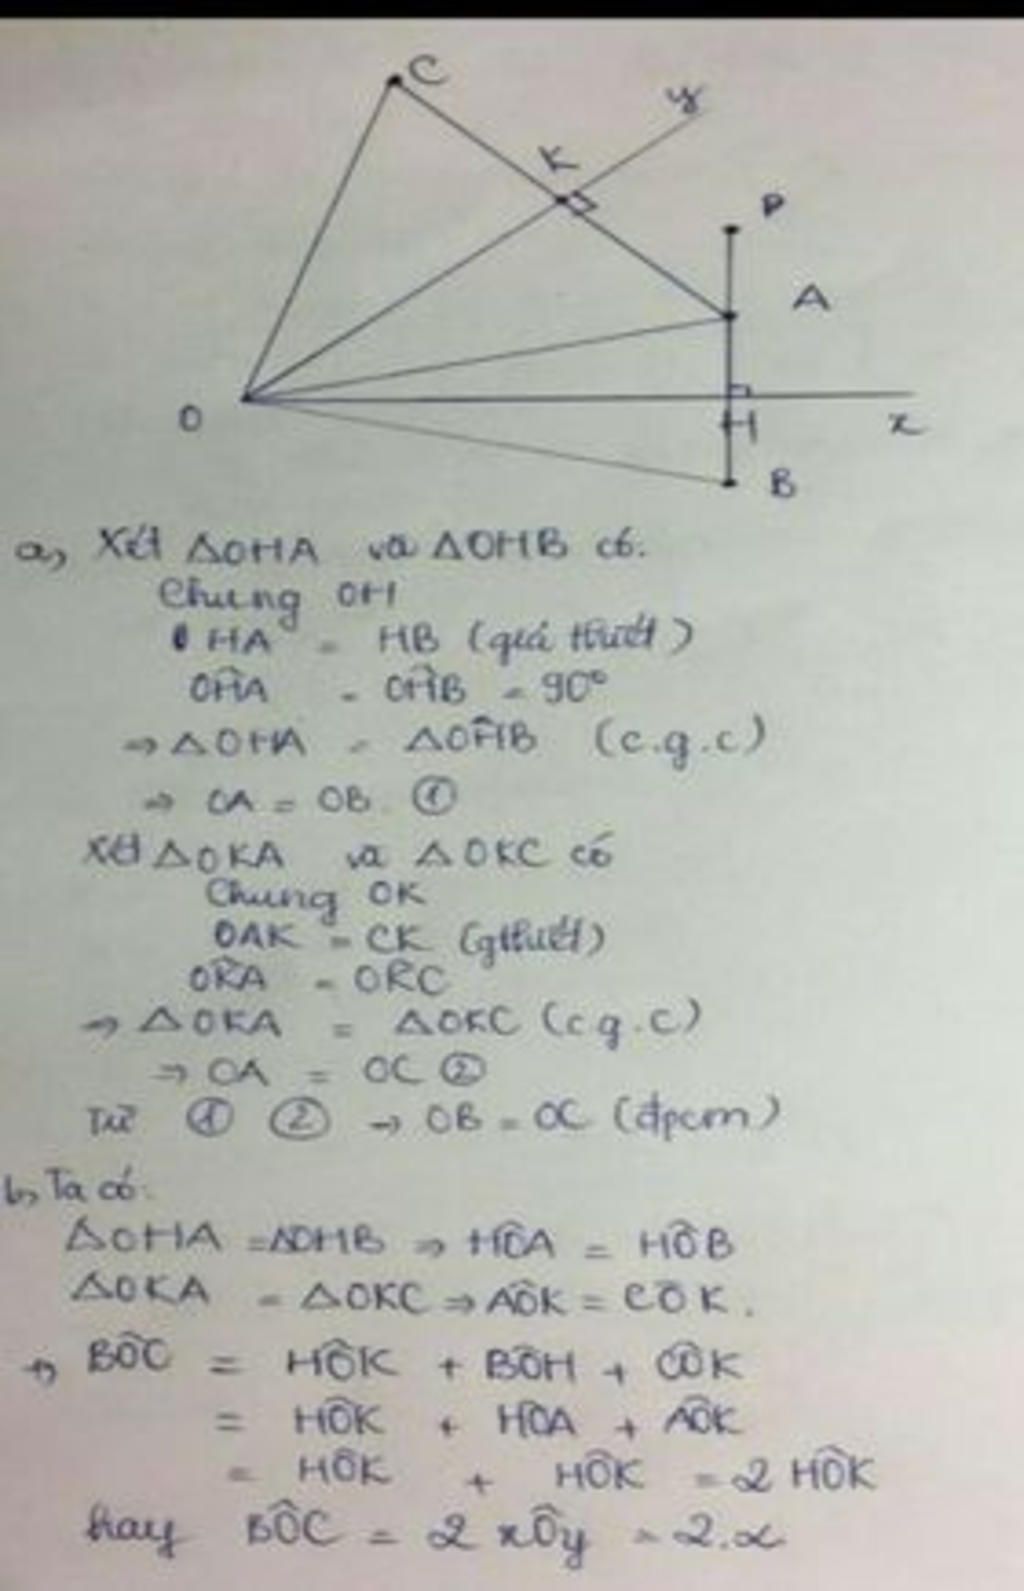 C
y
K
P
A
O
H
x
B
a, Xét ΔOHA và ΔOHB có.
Chung OH
HA = HB (giả thiết)
OĤA = OĤB = 90°
⇒ ΔOHA = ΔOĤB (c.g.c)
⇒ OA = OB ①
Xét ΔOKA và ΔOKC có
Chung OK
OAK = CK (gthiết)
OK̂A = OK̂C
⇒ ΔOKA = ΔOKC (c g.c)
⇒ OA = OC ②
Từ ① ② → OB = OC (đpcm)
b, Ta có:
ΔOHA = ΔOHB ⇒ HÔA = HÔB
ΔOKA = ΔOKC ⇒ AÔK = CÔK.
⇒ BÔC = HÔK + BÔH + CÔK
= HÔK + HÔA + AÔK
= HÔK + HÔK = 2 HÔK
hay BÔC = 2 xÔy = 2.α